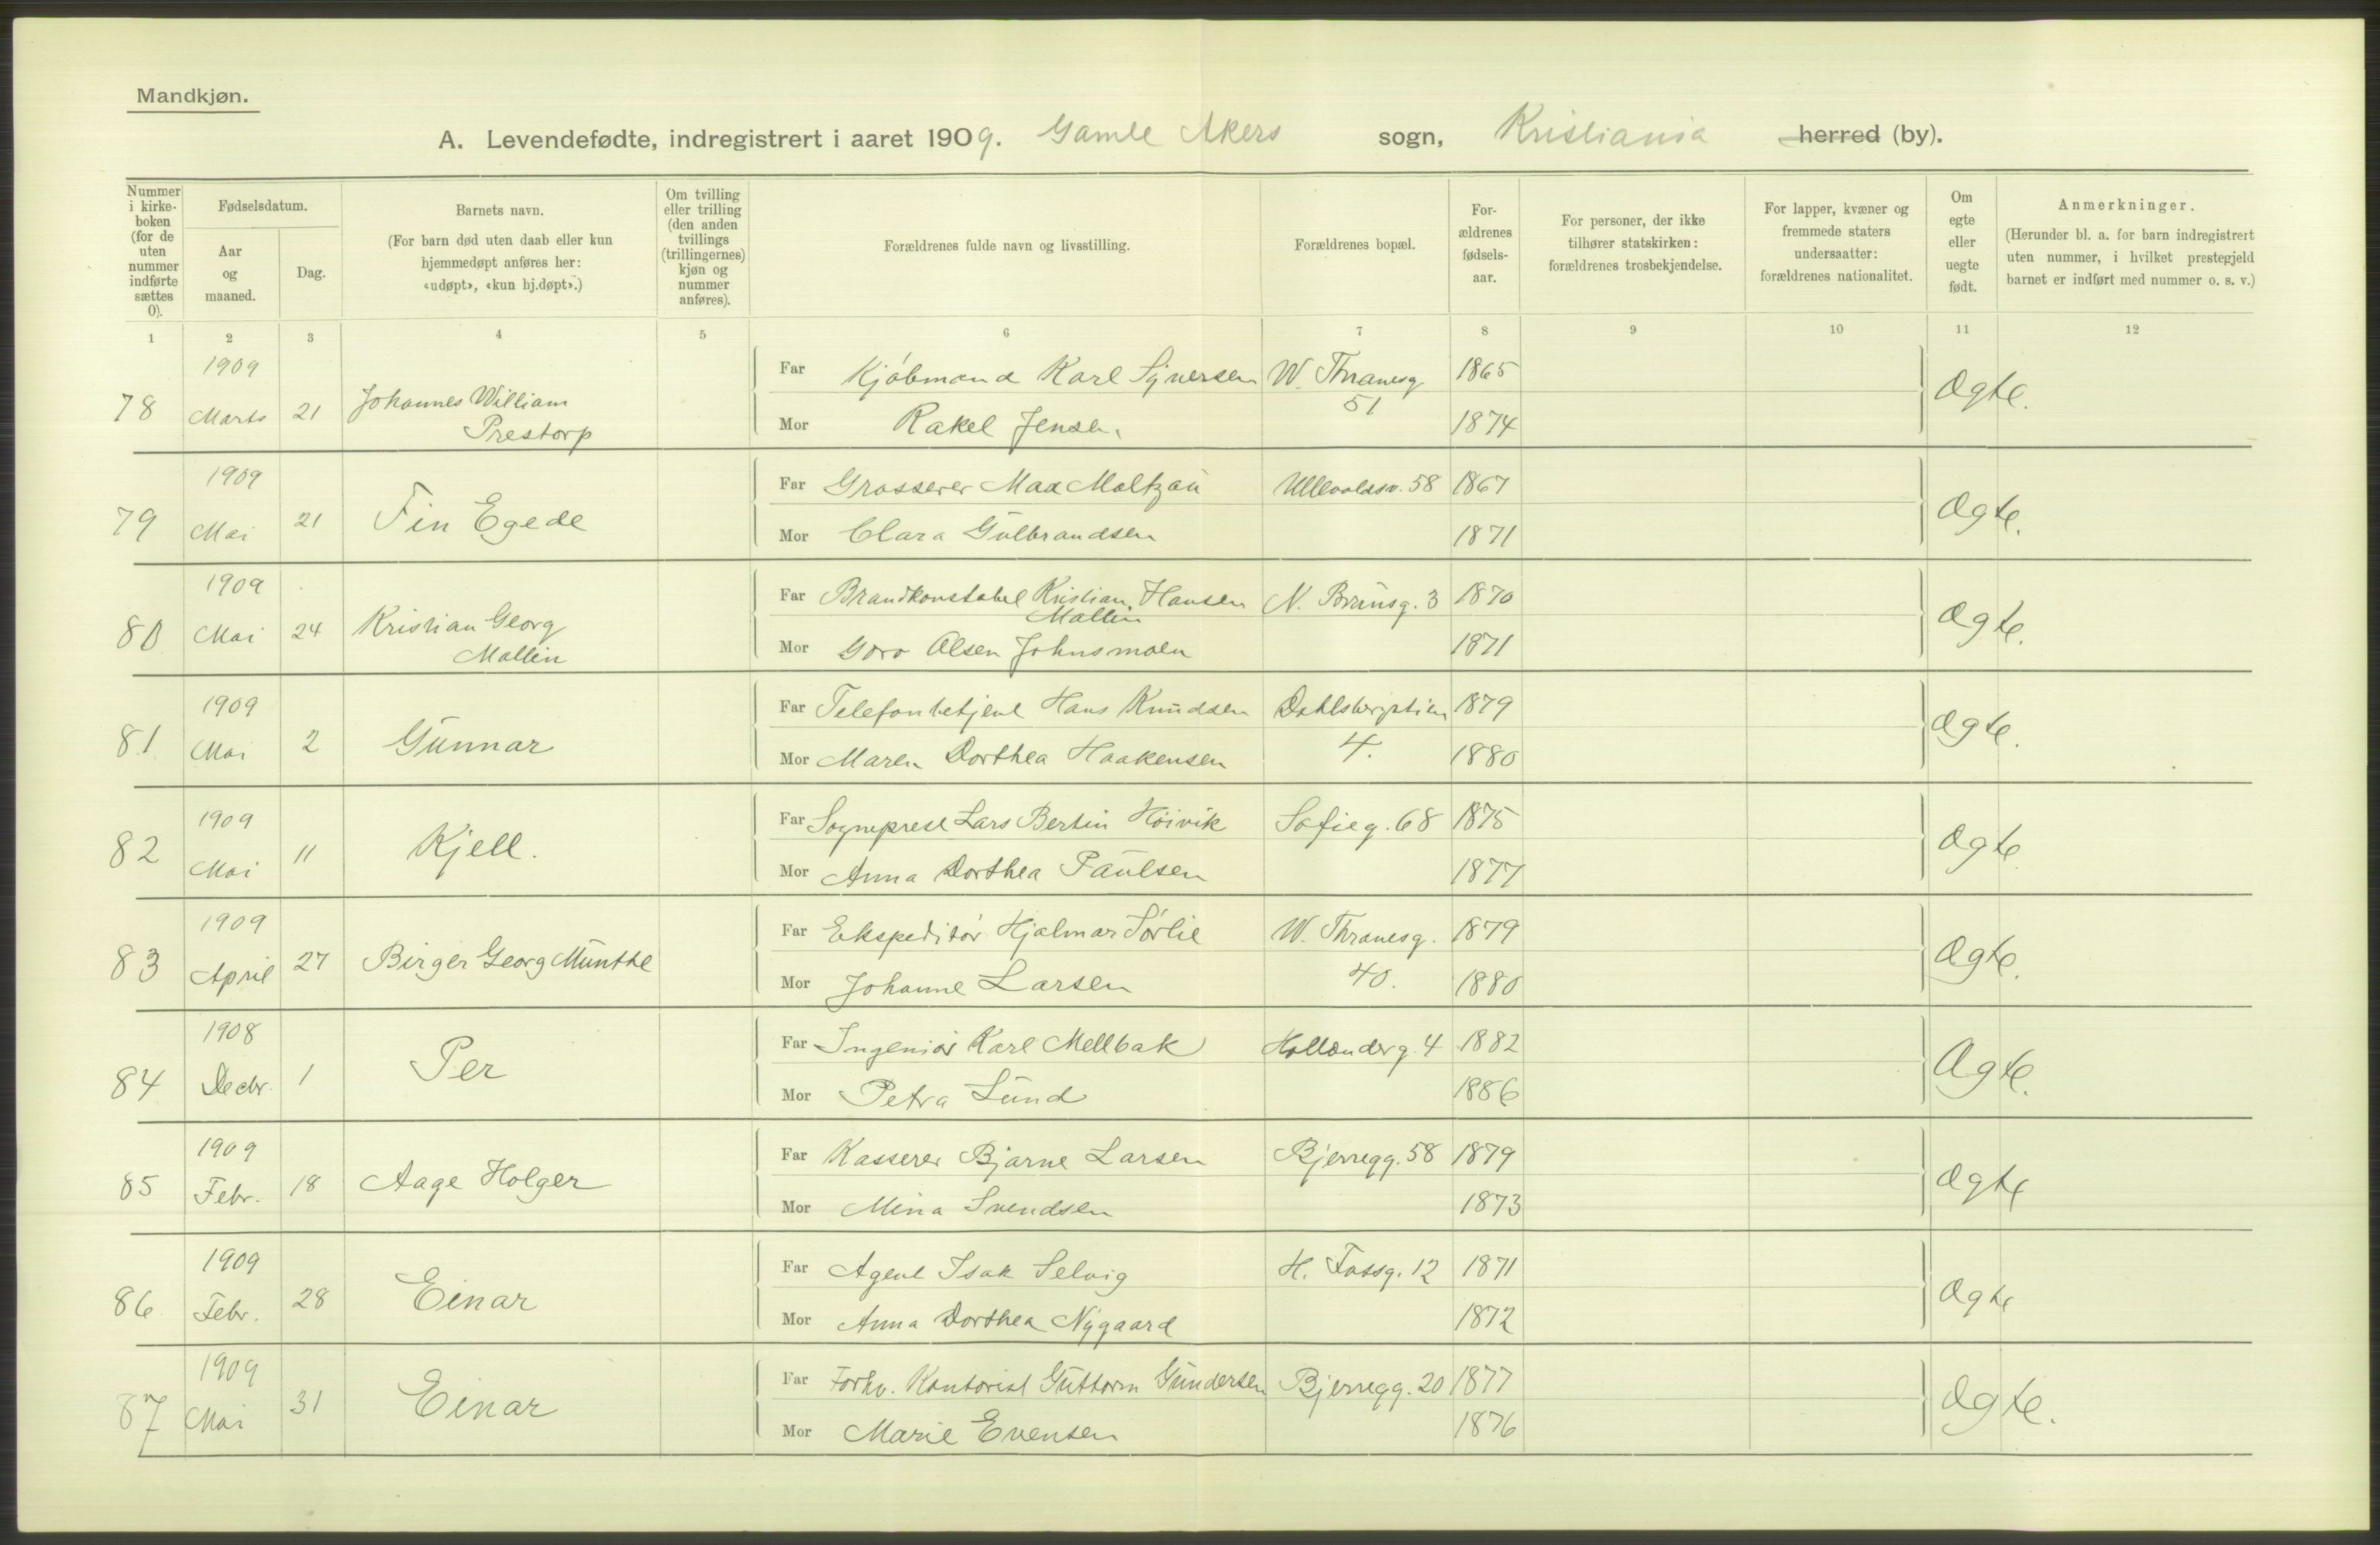 Mandkjøn.
A. Levendefødte, indregistrert i aaret 1909. Gamle Akers sogn, Kristiania herred (by).
Nummer i kirkeboken (for de uten nummer indførte sættes 0).
Fødselsdatum.
Aar og maaned.
Dag.
Barnets navn.
(For barn død uten daab eller kun hjemmedøpt anføres her: «udøpt», «kun hj.døpt».)
Om tvilling eller trilling (den anden tvillings (trillingernes) kjøn og nummer anføres).
Forældrenes fulde navn og livsstilling.
Forældrenes bopæl.
Forældrenes fødselsaar.
For personer, der ikke tilhører statskirken: forældrenes trosbekjendelse.
For lapper, kvæner og fremmede staters undersaatter: forældrenes nationalitet.
Om egte eller uegte født.
Anmerkninger.
(Herunder bl. a. for barn indregistrert uten nummer, i hvilket prestegjeld barnet er indført med nummer o. s. v.)
1 2 3 4 5 6 7 8 9 10 11 12
78 1909 Marts 21 Johannes William Prestorp
Far Kjøbmand Karl Syversen W. Thranesg. 51 1865 Ægte.
Mor Rakel Jensen 1874
79 1909 Mai 21 Fin Egede
Far Grosserer Max Maltzau Ullevoldsv. 58 1867 Ægte.
Mor Clara Gulbrandsen 1871
80 1909 Mai 24 Kristian Georg Mallin
Far Brandkonstabel Kristian Hansen Mallin N. Brunsg. 3 1870 Ægte.
Mor Goro Olsen Johnsmoen 1871
81 1909 Mai 2 Gunnar
Far Telefonbetjent Hans Knudsen Dahlsbergstien 4. 1879 Ægte.
Mor Maren Dorthea Haakensen 1880
82 1909 Mai 11 Kjell.
Far Sogneprest Lars Bertin Høivik Sofieg. 68 1875 Ægte
Mor Anna Dorthea Paulsen 1877
83 1909 April 27 Birger Georg Munthe
Far Ekspeditør Hjalmar Sørlie W. Thranesg. 40. 1879 Ægte.
Mor Johanne Larsen 1880
84 1908 Decbr. 1 Per
Far Ingeniør Karl Mellbak Hollænderg. 4 1882 Ægte.
Mor Petra Lund 1886
85 1909 Febr. 18 Aage Holger
Far Kasserer Bjarne Larsen Bjerregg. 58 1879 Ægte
Mor Mina Svendsen 1873
86 1909 Febr. 28 Einar
Far Agent Isak Selvig H. Fossg. 12 1871 Ægte
Mor Anna Dorthea Nygaard 1872
87 1909 Mai 31 Einar
Far Forhv. Kontorist Guttorm Gundersen Bjerregg. 20 1877 Ægte.
Mor Marie Evensen 1876